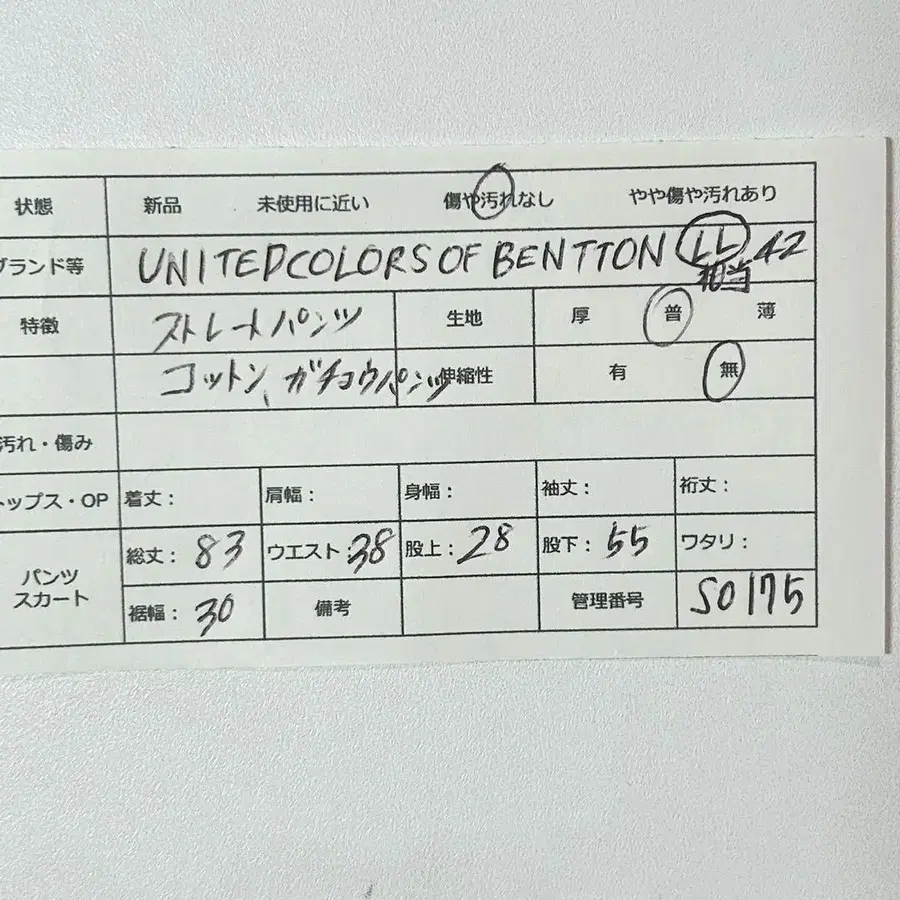 状態 新品 未使用に近い 傷や汚れなし やや傷や汚れあり
ブランド等 UNITED COLORS OF BENTTON LL 42
相当
特徴 ストレートパンツ 生地 厚 普 薄
コットン、ガチョウパンツ 伸縮性 有 無
汚れ・傷み
トップス・OP 着丈： 肩幅： 身幅： 袖丈： 裄丈：
パンツ スカート
総丈：83 ウエスト：38 股上：28 股下：55 ワタリ：
裾幅：30 備考 管理番号 S0175